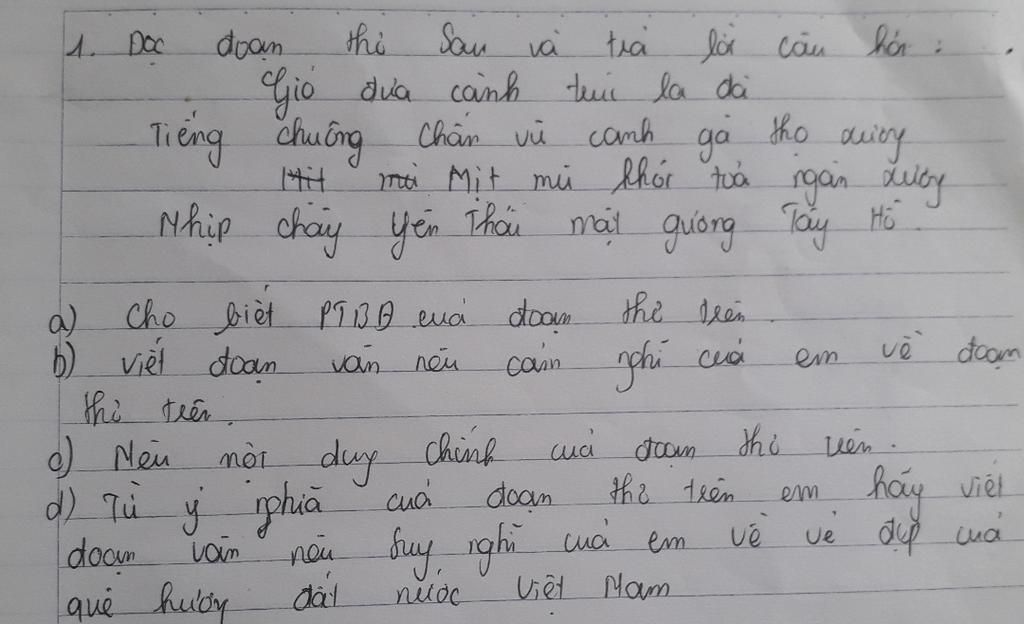 1. Đọc đoạn thơ sau và trả lời câu hỏi:
Gió đưa cành trúc la đà
Tiếng chuông Chấn Vũ canh gà thọ xương
Mịt mù Mịt mù khói toả ngàn sương
Nhịp chày Yên Thái mặt gương Tây Hồ.
a) Cho biết PTBĐ của đoạn thơ trên.
b) Viết đoạn văn nêu cảm nghĩ của em về đoạn
thơ trên.
c) Nêu nội dung chính của đoạn thơ trên.
d) Từ ý nghĩa của đoạn thơ trên em hãy viết
đoạn văn nêu suy nghĩ của em về vẻ đẹp của
quê hương đất nước Việt Nam